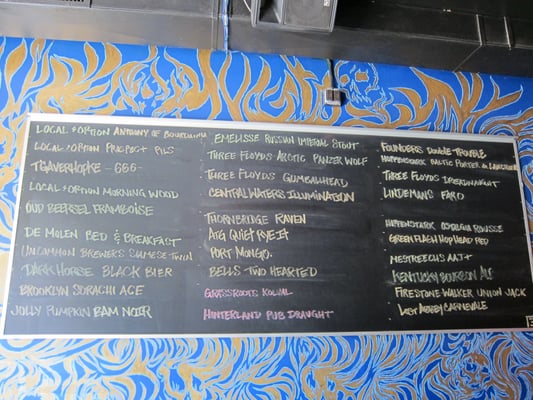 LOCAL OPTION ANTHONY OF
LOCAL OPTION PILS
T'GAVERHOPKE - 666 -
LOCAL OPTION MORNING WOOD
OUD BEERSEL FRAMBOISE
DE MOLEN BED & BREAKFAST
UNCOMMON BREWERS SIAMESE TWIN
DARK HORSE BLACK BIER
BROOKLYN SORACHI ACE
JOLLY PUMPKIN BAM NOIR
EMELISSE RUSSIAN IMPERIAL STOUT
THREE FLOYDS ARCTIC PANZER WOLF
THREE FLOYDS GUMBALLHEAD
CENTRAL WATERS ILLUMINATION
THORNBRIDGE RAVEN
ATG QUIET RYE IT
PORT MONGO
BELLS TWO HEARTED
GRASSROOTS KOLSAL
HINTERLAND PUB DRAUGHT
FOUNDERS DOUBLE TROUBLE
BALTIC PORTER
THREE FLOYDS
LINDEMANS FARO
ROUSSE
GREEN FLASH HOP HEAD RED
MESTREECHS AAJT
KENTUCKY BOURBON ALE
FIRESTONE WALKER UNION JACK
LOST ABBEY CARNEVALE